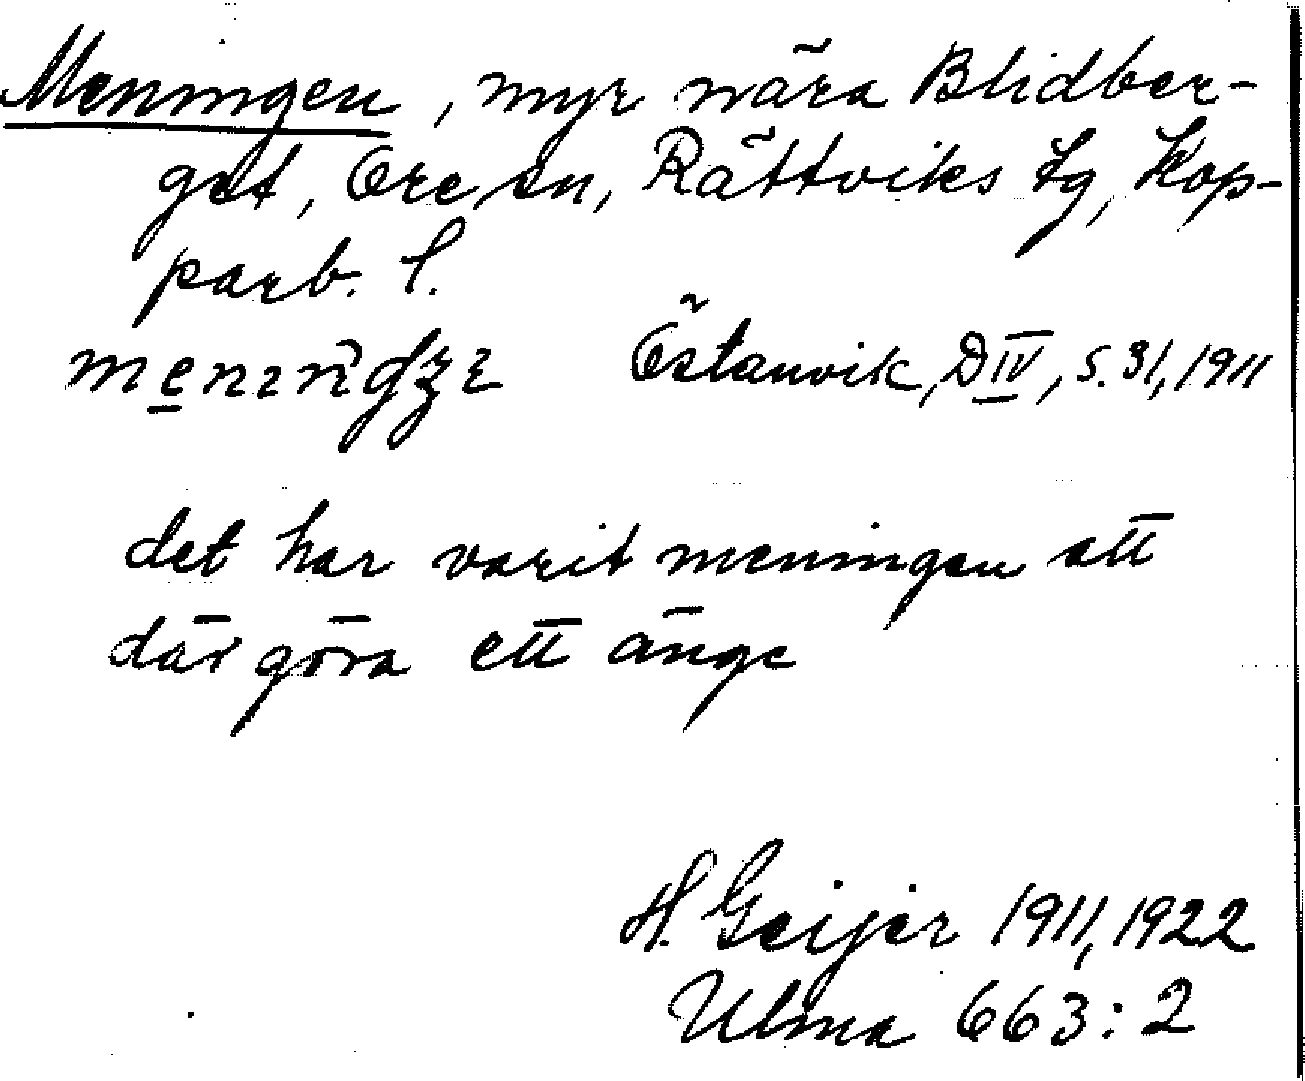 Meningen, myr nära Blidber-
get, Ore sn, Rättviks tg, Kop-
parb. l.
Östanvik, D IV, s. 31, 1911
det har varit meningen att
där göra ett änge
H. Geijer 1911, 1922
Ulma 663:2